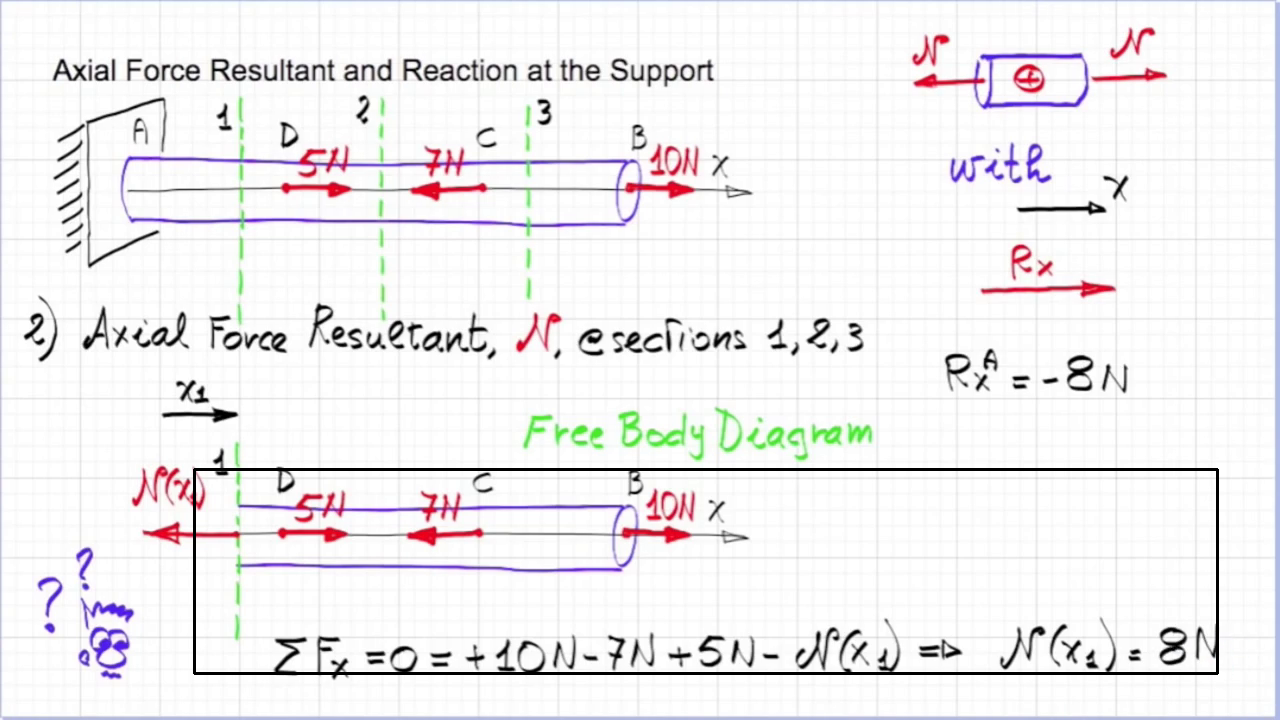 Axial Force Resultant and Reaction at the Support
N N
+
A 1 D 2 C 3 B
5N 7N 10N x
with
x
Rx
2) Axial Force Resultant, N, @sections 1,2,3
RxA = -8N
x1
Free Body Diagram
N(x1) 1 D C B
5N 7N 10N x
? ?
ΣFx = 0 = +10N - 7N + 5N - N(x1) => N(x1) = 8N